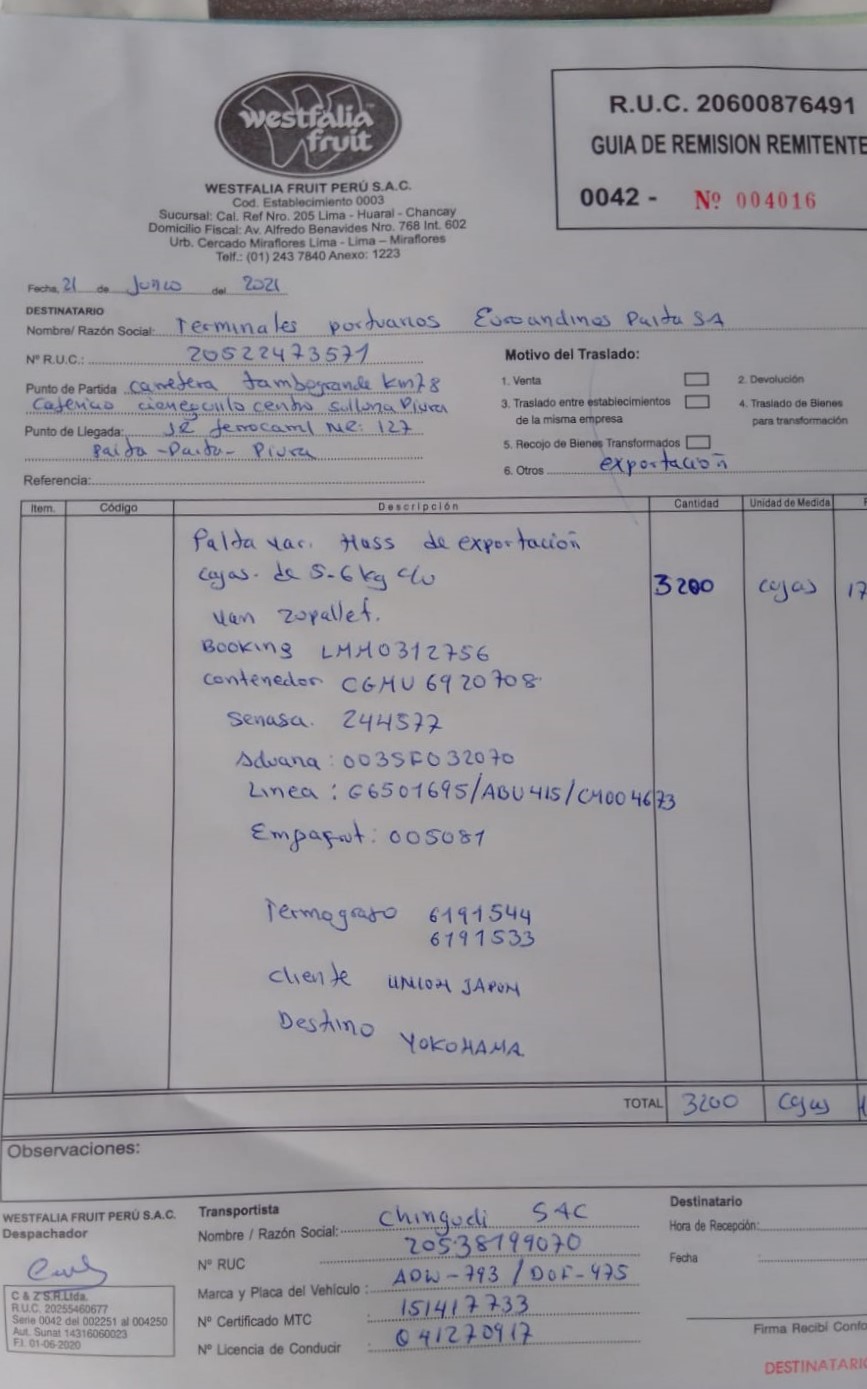 westfalia
fruit
WESTFALIA FRUIT PERÚ S.A.C.
Cod. Establecimiento 0003
Sucursal: Cal. Ref Nro. 205 Lima - Huaral - Chancay
Domicilio Fiscal: Av. Alfredo Benavides Nro. 768 Int. 602
Urb. Cercado Miraflores Lima - Lima – Miraflores
Telf.: (01) 243 7840 Anexo: 1223
R.U.C. 20600876491
GUIA DE REMISION REMITENTE
0042 - Nº 004016
Fecha, 21 de Junio del 2021
DESTINATARIO
Nombre/ Razón Social: Terminales portuarios Euroandinos Paita SA
Nº R.U.C.: 20522473571
Punto de Partida carretera tambogrande km78
cieneguillo centro sullana Piura
Punto de Llegada: JR ferrocarril NR: 127
Paita - Paita - Piura
Referencia:
Motivo del Traslado:
1. Venta
2. Devolución
3. Traslado entre establecimientos
de la misma empresa
4. Traslado de Bienes
para transformación
5. Recojo de Bienes Transformados
6. Otros exportación
Item. Código Descripción Cantidad Unidad de Medida
Palta var. Hass de exportación
cajas. de 5-6 kg c/u 3200 cajas 17
van 20pallet.
Booking LMM0312756
contenedor CGMU 6920708
Senasa. 244577
Aduana: 003SF032070
Linea: G6501695/ABU415/CM004673
005081
Termografo 6191544
6191533
cliente UNION JAPON
Destino YOKOHAMA
TOTAL 3200 cajas
Observaciones:
WESTFALIA FRUIT PERÚ S.A.C.
Despachador
C & Z S.R.Ltda.
R.U.C. 20255460677
Serie 0042 del 002251 al 004250
Aut. Sunat 14316060023
F.I. 01-06-2020
Transportista
Nombre / Razón Social: Chingudi SAC
Nº RUC 20538199070
Marca y Placa del Vehículo: ADW-793 / DOF-475
Nº Certificado MTC 151417733
Nº Licencia de Conducir Q41270917
Destinatario
Hora de Recepción:
Fecha
Firma Recibí Confo
DESTINATARIO